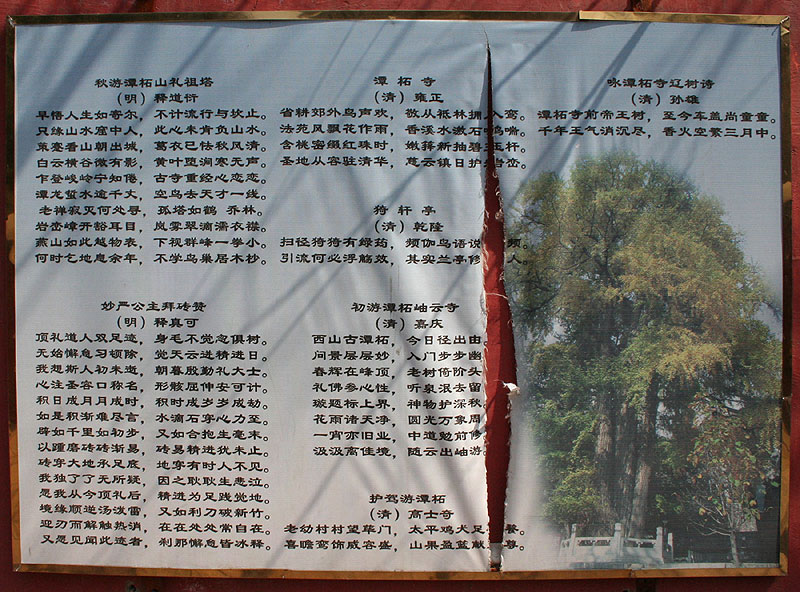 秋游潭柘山礼祖塔
(明) 释道衍
早悟人生如寄尔，不计流行与坎止。
只缘山水窟中人，此心未肯负山水。
策蹇看山朝出城，葛衣已怯秋风清。
白云横谷微有影，黄叶堕涧寒无声。
乍登峻岭宁知倦，古寺重经心恋恋。
潭龙蜇水逾千丈，空鸟去天才一线。
老禅寂灭何处寻，孤塔如鹤 乔林。
岩峦峰开豁耳目，岚雾翠滴濡衣襟。
燕山如此越物表，下视群峰一拳小。
何时乞地息余年，不学鸟巢居木杪。
妙严公主拜砖赞
(明) 释真可
顶礼道人双足迹，身毛不觉忽俱树。
无始懈怠习顿除，觉天云迸精进日。
我想斯人初未逝，朝暮殷勤礼大士。
心注圣容口称名，形骸屈伸安可计。
积日成月月成时，积时成岁岁成劫。
如是积渐难尽言，水滴石穿心力至。
辟如千里如初步，又如合抱生毫末。
以踵磨砖砖渐易，砖易精进犹未止。
砖穿大地承足底，地穿有时人不见。
我独了了无所疑，因之耿耿生悲泣。
忽我从今顶礼后，精进为足践觉地。
境缘顺逆汤泼雷，又如利刀破新竹。
迎刃而解触热消，在在处处常自在。
又忽见闻此迹者，刹那懈怠皆冰释。
潭柘寺
(清) 雍正
省耕郊外鸟声欢，敬从祗林拥 入鸾。
法苑风飘花作雨，香溪水激石 鸣喘。
含桃密缀红珠时，嫩箨新抽碧玉杆。
圣地从容驻清华，慈云镇日护岩峦。
猗轩亭
(清) 乾隆
扫径猗猗有绿药，频伽鸟语说 频。
引流何必浮觞效，其实兰亭修 人。
初游潭柘岫云寺
(清) 嘉庆
西山古潭柘，今日径出由。
问景层层妙，入门步步幽
春辉在峰顶，老树倚阶头
礼佛参心性，听泉泯去留
璇题标上界，神物护深秋
花雨诸天净，圆光万象周
一宵亦旧业，中道勉前修
汲汲离佳境，随云出岫游
护驾游潭柘
(清) 高士奇
老幼村村望荜门，太平鸡犬足 餐。
喜瞻鸾饰威容盛，山果盈篮献 尊。
咏潭柘寺辽树诗
(清) 孙雄
潭柘寺前帝王树，至今车盖尚童童。
千年王气消沉尽，香火空繁三月中。